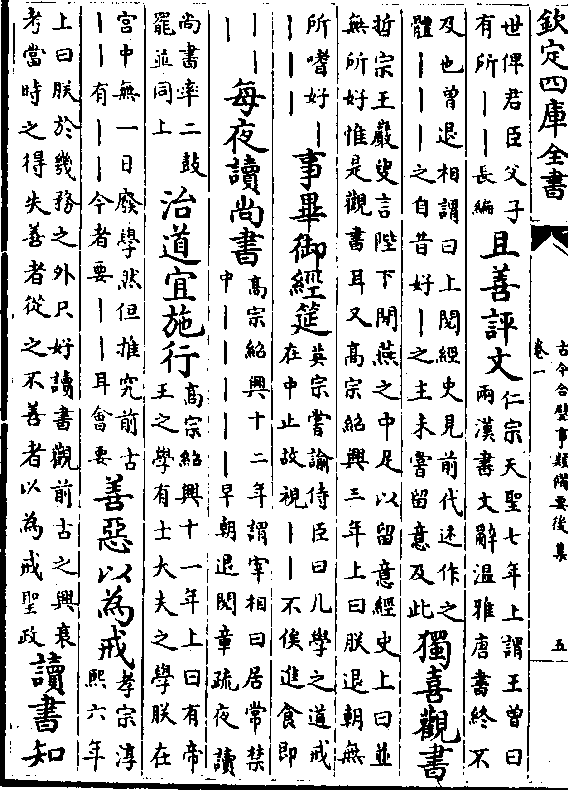 欽定四庫全書
古今合璧事類備要後集
卷一
五
世俾君臣父子
有所——長編
且善評文
仁宗天聖七年上謂王曾曰
兩漢書文辭溫雅唐書終不
及也曾退相謂曰上閱經史見前代述作之
體———之自昔好—之主未嘗留意及此
獨喜觀書
哲宗王巖叟言陛下閒燕之中足以留意經史上曰並
無所好惟是觀書耳又高宗紹興三年上曰朕退朝無
所嗜好—
———
事畢御經筵
英宗嘗諭侍臣曰凡學之道戒
在中止故視——不俟進食即
——
——
每夜讀尚書
高宗紹興十二年謂宰相曰居常禁
中—————早朝退閱章疏夜讀
尚書率二鼓
罷並同上
治道宜施行
高宗紹興十一年上曰有帝
王之學有士大夫之學朕在
宮中無一日廢學然但推究前古
——有——今者要——耳會要
善惡以為戒
孝宗淳
熙六年
上曰朕於幾務之外只好讀書觀前古之興衰
考當時之得失善者從之不善者以為戒聖政
讀書知